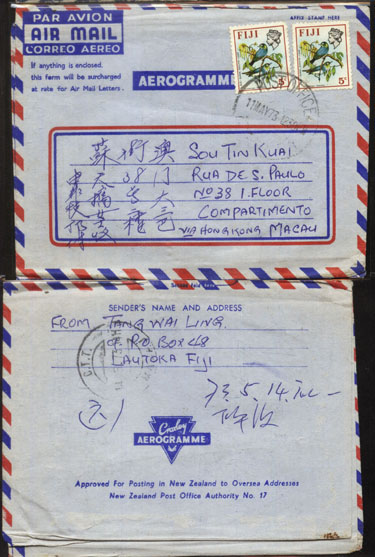 PAR AVION
AIR MAIL
CORREO AEREO
If anything is enclosed,
this form will be surcharged
at rate for Air Mail Letters.
AEROGRAMME
AFFIX STAMP HERE
FIJI
5c
FIJI
5c
POST OFFICE
11 MAY 73
SOU TIN KUAI
RUA DE S. PAULO
NO 38 1. FLOOR
COMPARTIMENTO
VIA HONGKONG MACAU
澳門大
街38号
蘇天
Second fold here
SENDER'S NAME AND ADDRESS
FROM TANG WAI LING.
P.O. BOX 48
LAUTOKA FIJI
C.T.T.
73.5.14.
Croxley
AEROGRAMME
Approved for Posting in New Zealand to Oversea Addresses
New Zealand Post Office Authority No. 17